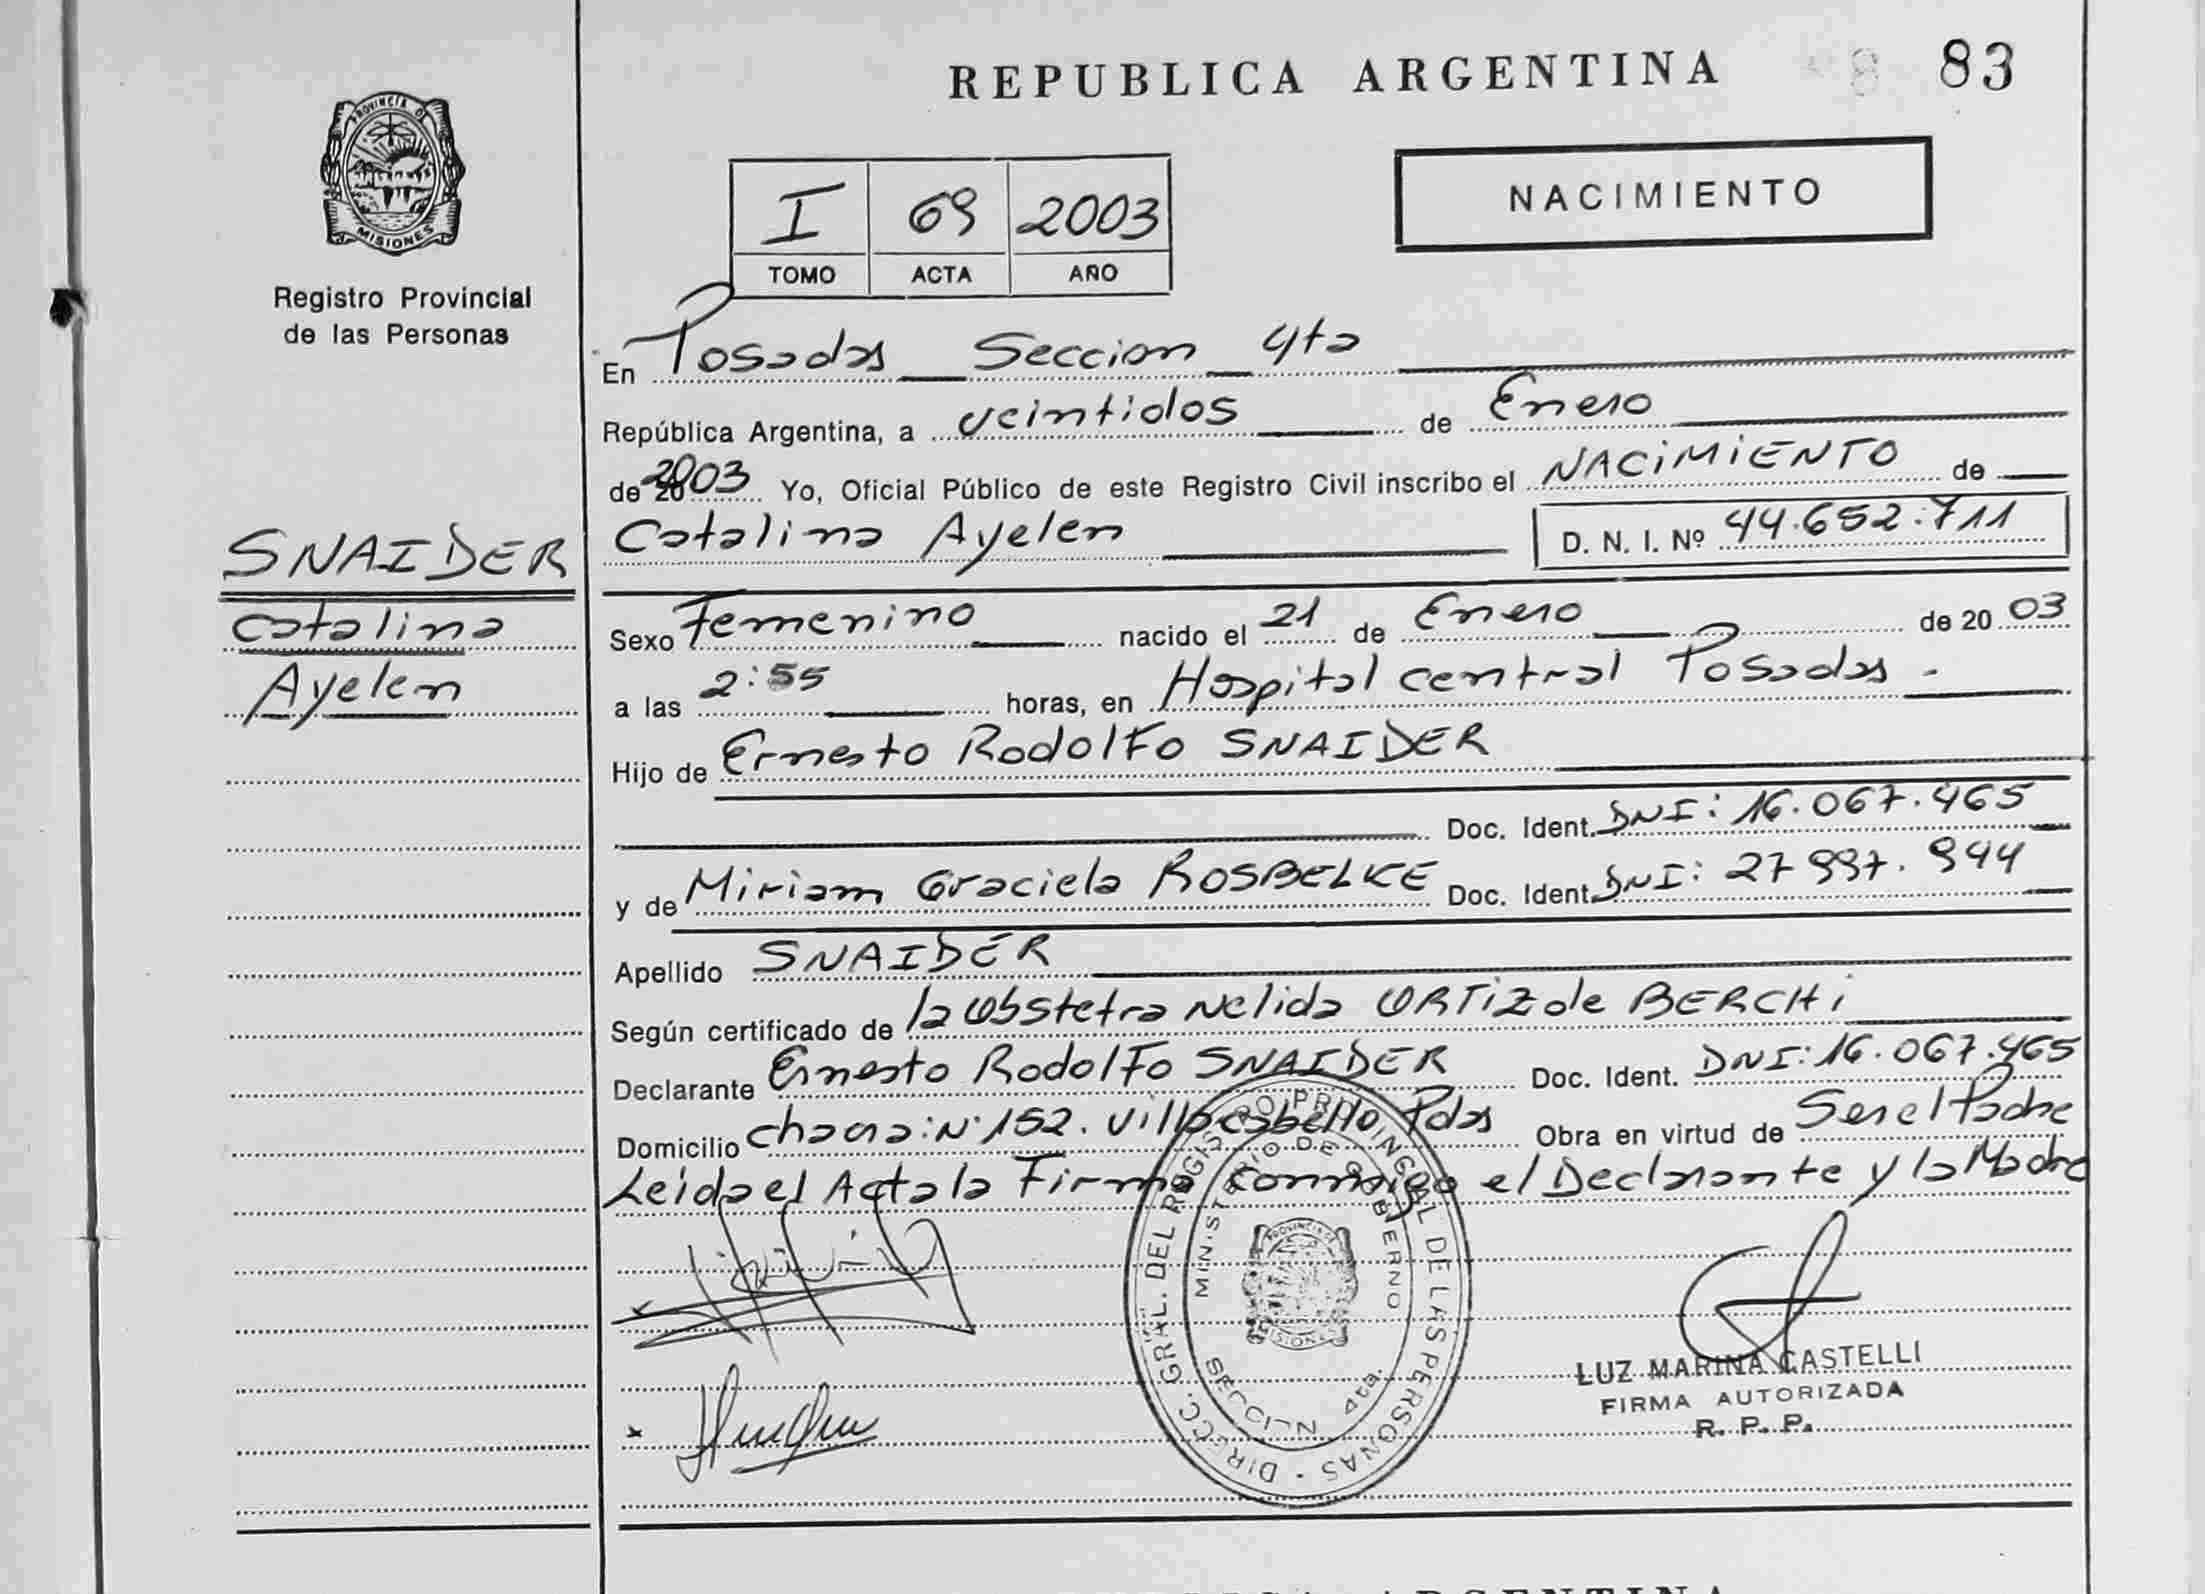 REPUBLICA ARGENTINA 83
PROVINCIA DE
MISIONES
Registro Provincial
de las Personas
NACIMIENTO
I 69 2003
TOMO ACTA AÑO
En Posadas Seccion 4ta
República Argentina, a veintidos de Enero
de 2003 Yo, Oficial Público de este Registro Civil inscribo el NACIMIENTO de
Catalina Ayelen D. N. I. Nº 44.652.711
SNAIDER
Catalina
Ayelen
Sexo Femenino nacido el 21 de Enero de 20 03
a las 2:55 horas, en Hospital central Posadas.
Hijo de Ernesto Rodolfo SNAIDER
Doc. Ident. DNI: 16.067.465
y de Miriam Graciela ROSBELKE Doc. Ident. DNI: 27 997.944
Apellido SNAIDER
Según certificado de la Obstetra Nelida ORTIZ de BERCHI
Declarante Ernesto Rodolfo SNAIDER Doc. Ident. DNI: 16.067.465
Domicilio chacra: Nº 152. Villa cabello Pdas Obra en virtud de Ser el Padre
Leida el Acta la Firma conmigo el Declarante y la Madre
DIRECC. GRAL. DEL REGISTRO PROVINCIAL DE LAS PERSONAS
MINISTERIO DE GOBIERNO
SECCION 4ta.
MISIONES
LUZ MARINA CASTELLI
FIRMA AUTORIZADA
R. P. P.